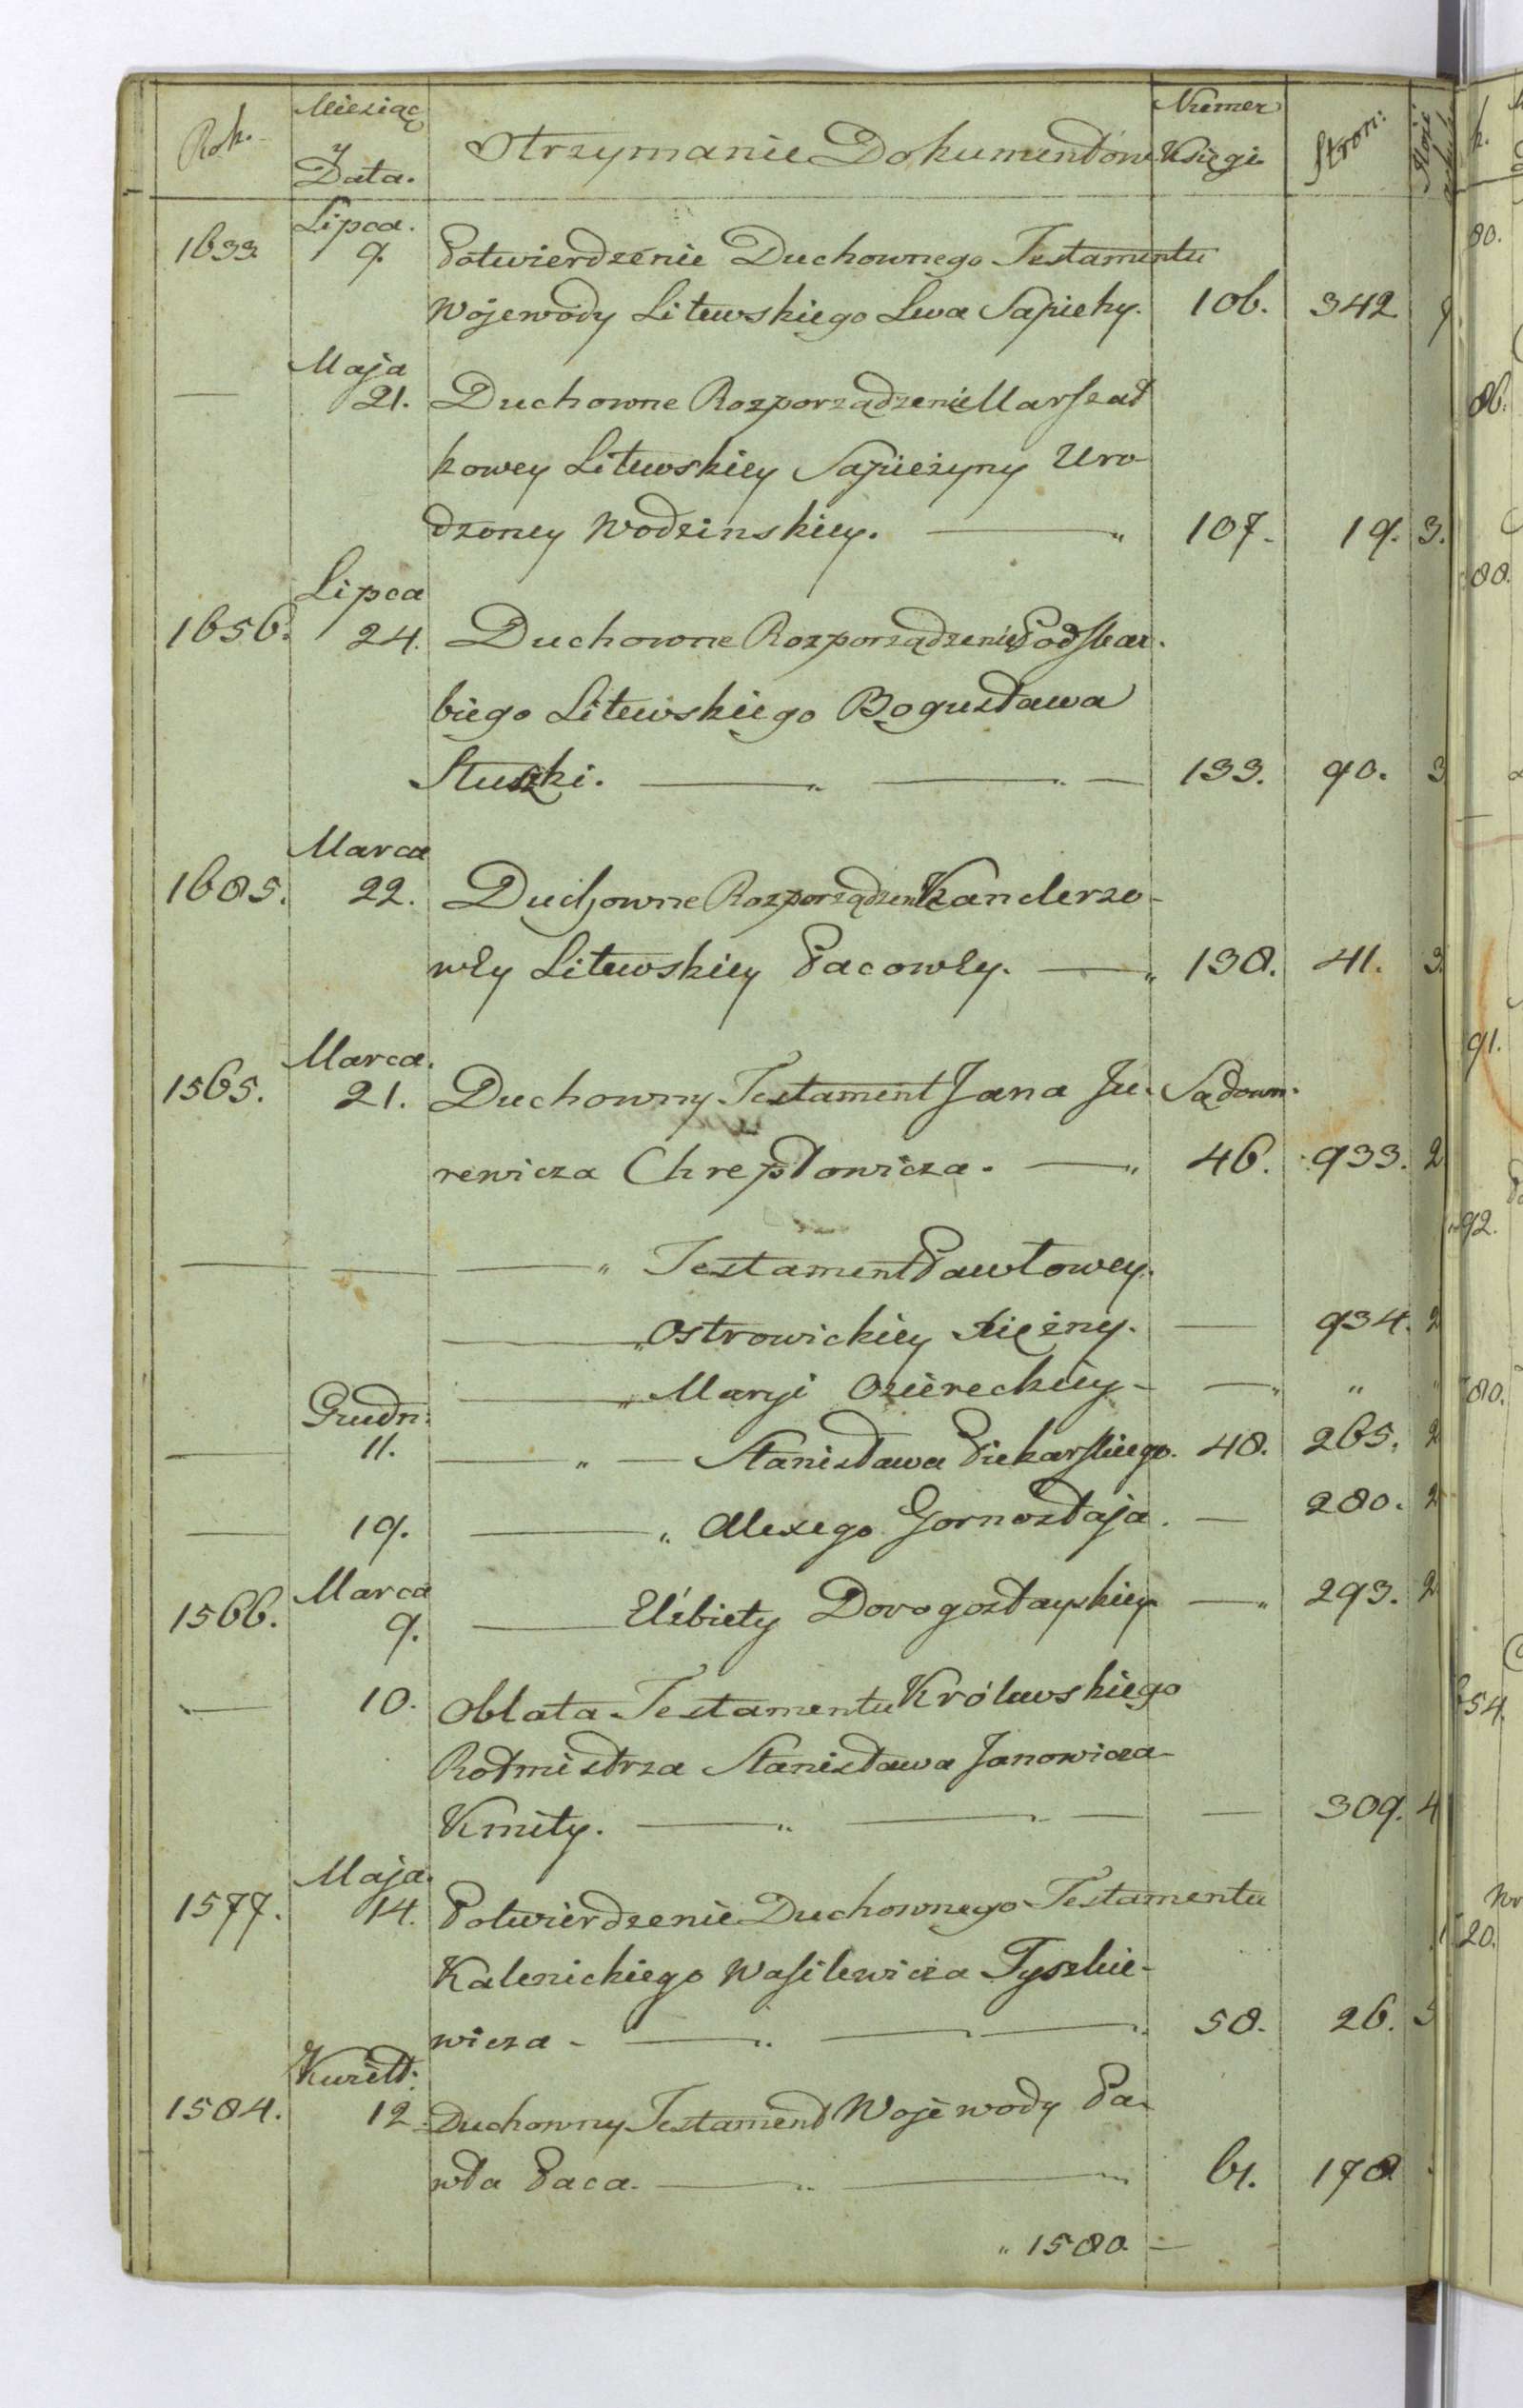 Rok. Miesiąc Otrzymanie Dokumentów Numer Stron:
y Księgi
Data.
1633 Lipca.
9. Potwierdzenie Duchownego Testamentu
Wojewody Litewskiego Lwa Sapiehy. 106. 342
— Maja
21. Duchowne Rozporządzenie Marszał
kowey Litewskiey Sapieżyny Uro-
dzoney Wodzinskiey. — „ 107. 19. 3.
Lipca
1656. 24. Duchowne Rozporządzenie Podskar.
biego Litewskiego Bogusława
Słuszki. — „ — „ — 133. 90. 3
Marca
1685. 22. Duchowne Rozporządzenie Kanclerzo-
wey Litewskiey Pacowey. — „ 138. 41. 3.
Marca.
1565. 21. Duchowny Testament Jana Ju- Sądown:
rewicza Chreptowicza. — „ 46. 933. 2
— — — „ Testament Pawłowey.
— „ Ostrowickiey Xiężny. — 934. 2
— „ Maryi Ozereckiey - — „ „ „
Grudn:
— 11. — „ — Stanisława Piekarskiego. 48. 265. 2
— 19. — „ Alexego Gornostaja. — 280. 2
Marca
1566. 9. — Elżbiety Dorogostayskiey — „ 293. 2
— 10. Oblata Testamentu Królewskiego
Rotmistrza Stanisława Janowicza
Kmity. — „ — „ — — 309. 4
Maja.
1577. 14. Potwierdzenie Duchownego Testamentu
Kalenickiego Wasilewicza Tyszkie-
wicza - — „ — „ — „ 58. 26. 3
Kwiet:
1584. 12. Duchowny Testament Wojewody Pa-
wła Paca. — „ — „ 61. 178
„ 1580 —